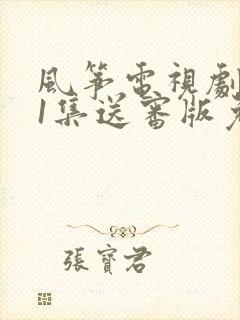 風箏電視劇
1集送審版
張寶君